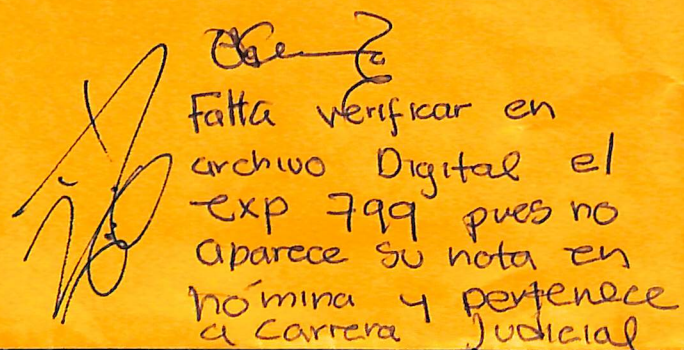 Falta verificar en
archivo Digital el
exp 799 pues no
aparece su nota en
nómina y pertenece
a Carrera Judicial